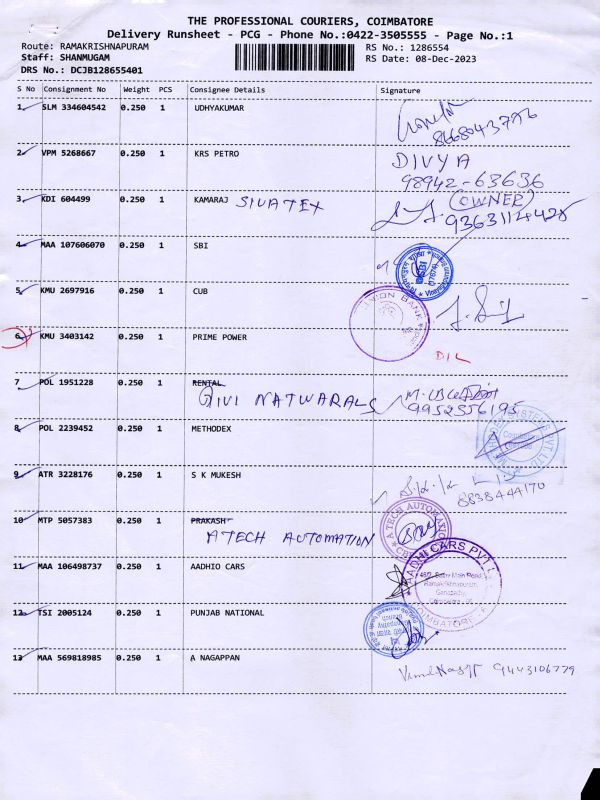 THE PROFESSIONAL COURIERS, COIMBATORE
Delivery Runsheet - PCG - Phone No.:0422-3505555 - Page No.:1
Route: RAMAKRISHNAPURAM RS No.: 1286554
Staff: SHANMUGAM RS Date: 08-Dec-2023
DRS No.: DCJB128655401
S No Consignment No Weight PCS Consignee Details Signature
1 SLM 334604542 0.250 1 UDHYAKUMAR
8668043776
2 VPM 5268667 0.250 1 KRS PETRO DIVYA
98942-63636
3 KDI 604499 0.250 1 KAMARAJ SIVATEX (OWNER)
9363114428
4 MAA 107606070 0.250 1 SBI
5 KMU 2697916 0.250 1 CUB
UNION BANK
6 KMU 3403142 0.250 1 PRIME POWER
D/L
7 POL 1951228 0.250 1 RENTAL
DIVI NATWARALS 9952556195
8 POL 2239452 0.250 1 METHODEX
9 ATR 3228176 0.250 1 S K MUKESH
8838444170
10 MTP 5057383 0.250 1 PRAKASH
ATECH AUTOMATION
A TECH AUTOMATION
11 MAA 106498737 0.250 1 AADHIO CARS
AADHI CARS PVT L
Ramakrishnapuram,
Ganapathy,
COIMBATORE
12 TSI 2005124 0.250 1 PUNJAB NATIONAL
13 MAA 569818985 0.250 1 A NAGAPPAN
9443106779